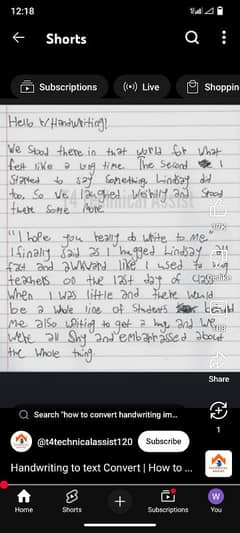 12:18
Shorts
Subscriptions
Live
Shoppin
Hello r/Handwriting!
We stood there in that world for what
felt like a long time. The second I
started to say something Lindsay did
too. So we laughed weirdly and stood
there some more.
t4 Technical Assist
"I hope you really do write to me."
I finally said as I hugged Lindsay
fast and awkward like I used to
teachers on the last day of class
when I was little and there would
be a whole line of students behind
me also waiting to get a hug and we
were all shy and embarrassed about
the whole thing.
Share
Search "how to convert handwriting im...
1
@t4technicalassist120
Subscribe
Handwriting to text Convert | How to ...
Home
Shorts
Subscriptions
W
You